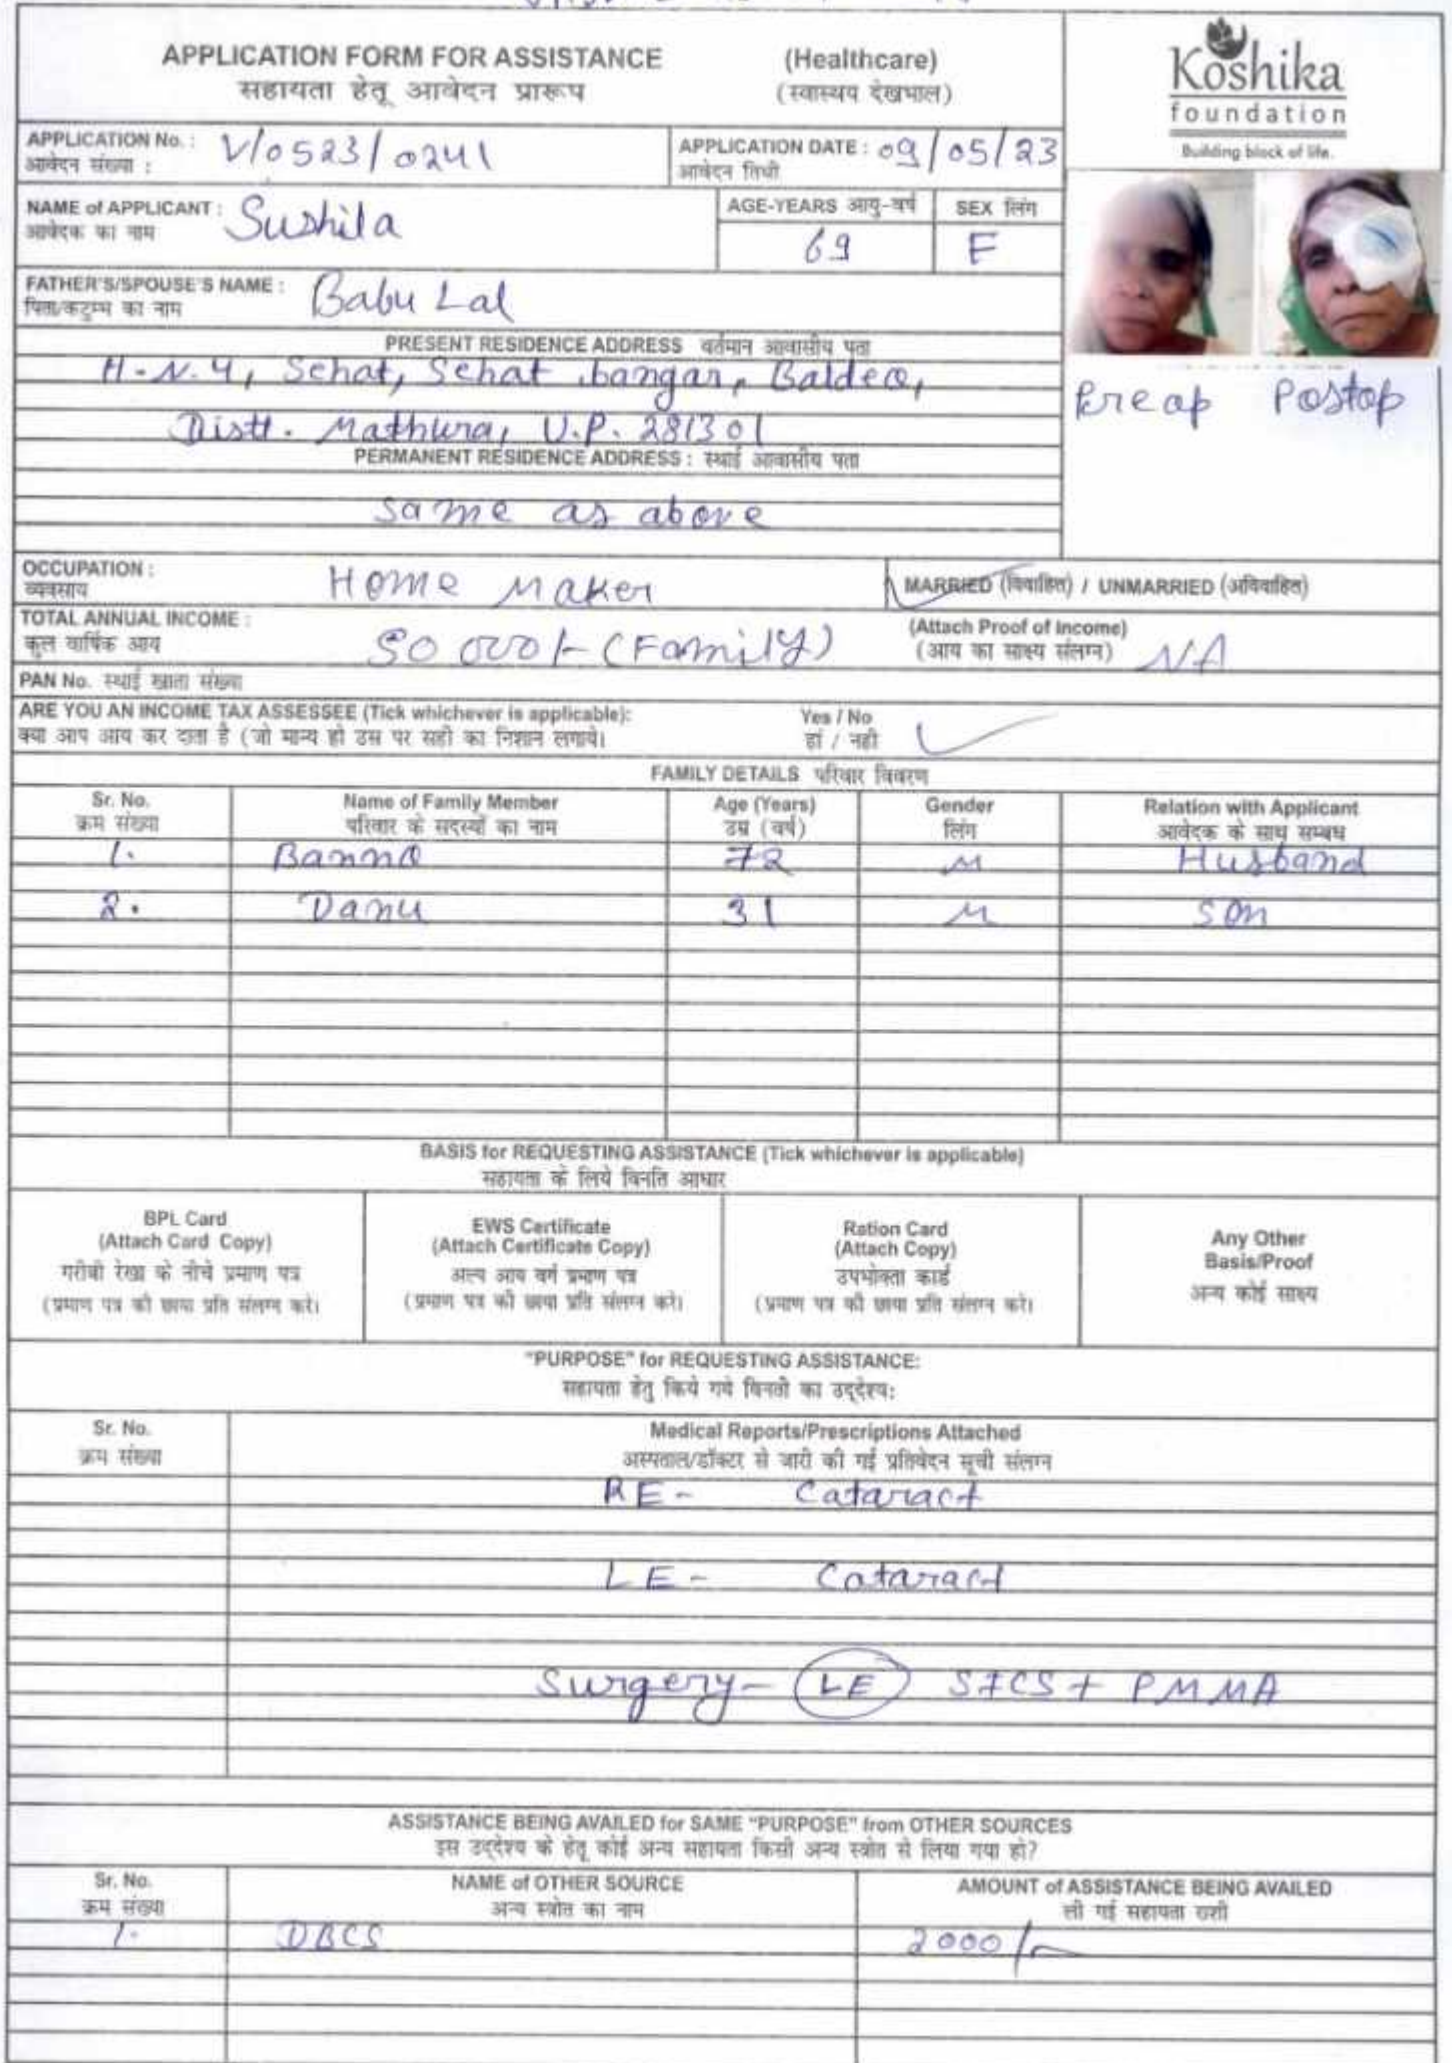 APPLICATION FORM FOR ASSISTANCE (Healthcare)
सहायता हेतू आवेदन प्रारूप (स्वास्थय देखभाल)
Koshika
foundation
Building block of life.
APPLICATION No. : V/0523/0241
आवेदन संख्या :
APPLICATION DATE : 09/05/23
आवेदन तिथी
NAME of APPLICANT : Sushila
आवेदक का नाम
AGE-YEARS आयु-वर्ष
69
SEX लिंग
F
FATHER'S/SPOUSE'S NAME : Babu Lal
पिता/कटुम्भ का नाम
PRESENT RESIDENCE ADDRESS वर्तमान आवासीय पता
H-N-4, Sehat, Sehat bangar, Baldeo,
Distt. Mathura, U.P. 281301
Preop Postop
PERMANENT RESIDENCE ADDRESS : स्थाई आवासीय पता
same as above
OCCUPATION : Home Maker
व्यवसाय
MARRIED (विवाहित) / UNMARRIED (अविवाहित)
TOTAL ANNUAL INCOME : 50 000/- (Family)
कुल वार्षिक आय
(Attach Proof of Income)
(आय का साक्ष्य संलग्न) NA
PAN No. स्थाई खाता संख्या
ARE YOU AN INCOME TAX ASSESSEE (Tick whichever is applicable): Yes / No
क्या आप आय कर दाता है (जो मान्य हो उस पर सही का निशान लगाये। हां / नही
FAMILY DETAILS परिवार विवरण
Sr. No. Name of Family Member Age (Years) Gender Relation with Applicant
क्रम संख्या परिवार के सदस्यों का नाम उम्र (वर्ष) लिंग आवेदक के साथ सम्बध
1. Banno 72 M Husband
2. Danu 31 M Son
BASIS for REQUESTING ASSISTANCE (Tick whichever is applicable)
सहायता के लिये विनति आधार
BPL Card
(Attach Card Copy)
गरीबी रेखा के नीचे प्रमाण पत्र
(प्रमाण पत्र की छाया प्रति संलग्न करे।
EWS Certificate
(Attach Certificate Copy)
अल्प आय वर्ग प्रमाण पत्र
(प्रमाण पत्र की छाया प्रति संलग्न करे।
Ration Card
(Attach Copy)
उपभोक्ता कार्ड
(प्रमाण पत्र की छाया प्रति संलग्न करे।
Any Other
Basis/Proof
अन्य कोई साक्ष्य
"PURPOSE" for REQUESTING ASSISTANCE:
सहायता हेतु किये गये विनती का उद्देश्य:
Sr. No. Medical Reports/Prescriptions Attached
क्रम संख्या अस्पताल/डॉक्टर से जारी की गई प्रतिवेदन सूची संलग्न
RE- Cataract
LE- Cataract
Surgery- LE SICS + PMMA
ASSISTANCE BEING AVAILED for SAME "PURPOSE" from OTHER SOURCES
इस उद्देश्य के हेतू कोई अन्य सहायता किसी अन्य स्त्रोत से लिया गया हो?
Sr. No. NAME of OTHER SOURCE AMOUNT of ASSISTANCE BEING AVAILED
क्रम संख्या अन्य स्त्रोत का नाम ली गई सहायता राशी
1. DBCS 2000/-